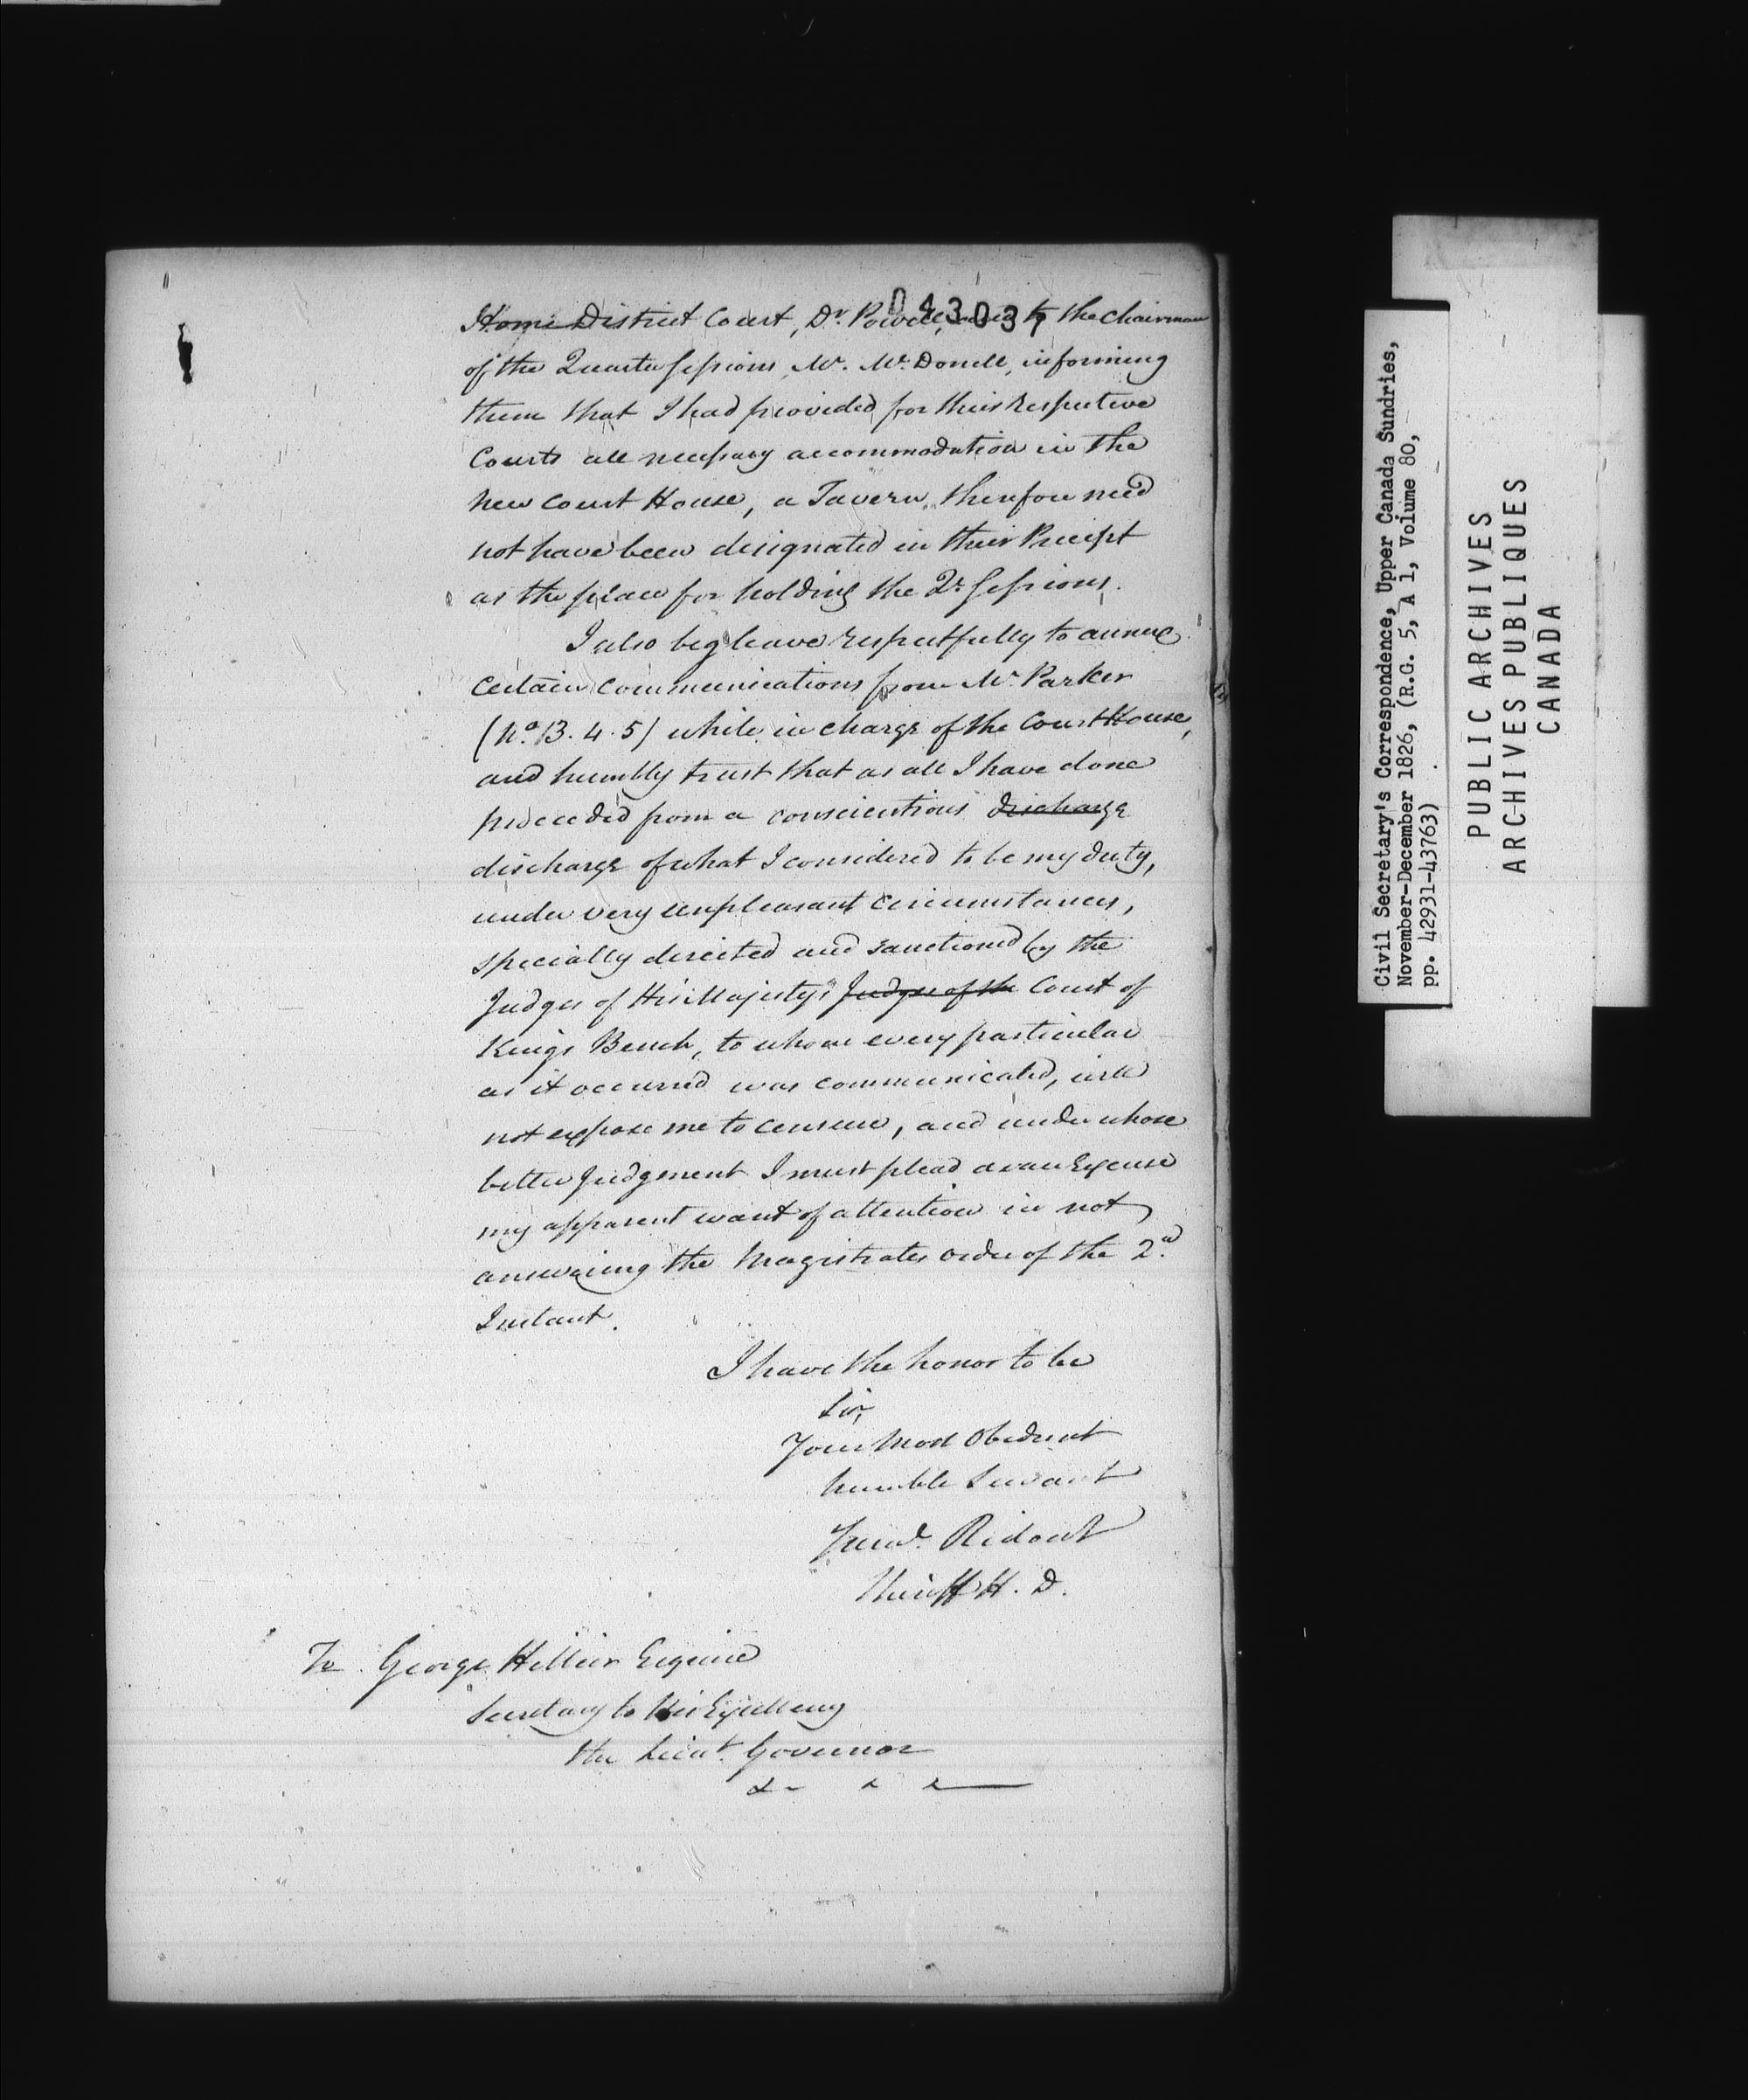 043037
Home District Court, Dr. Powell, and to the Chairman
of the Quarter Sessions, Mr. McDonell, informing
them that I had provided for their respective
Courts all necessary accommodation in the
new Court House, a Tavern, therefore need
not have been designated in their Precept
as the place for holding the Qr. Sessions.
I also beg leave respectfully to annex
certain communications from Mr. Parker
(No. 3. 4. 5) while in charge of the Court House,
and humbly trust that as all I have done
proceeded from a conscientious discharge
discharge of what I considered to be my duty,
under very unpleasant circumstances,
specially directed and sanctioned by the
Judges of His Majesty's Judges of the Court of
Kings Bench, to whom every particular
as it occurred was communicated, will
not expose me to censure, and under whose
better Judgment I must plead as an Excuse
my apparent want of attention in not
answering the Magistrates order of the 2d.
Instant.
I have the honor to be
Sir,
Your Most Obedient
humble Servant
Ridout
Sheriff H. D.
To George Hillier Esquire
Secretary to His Excellency
the Lieut. Governor
Civil Secretary's Correspondence, Upper Canada Sundries,
November-December 1826, (R.G. 5, A 1, Volume 80,
pp. 42931-43763)
PUBLIC ARCHIVES
ARCHIVES PUBLIQUES
CANADA